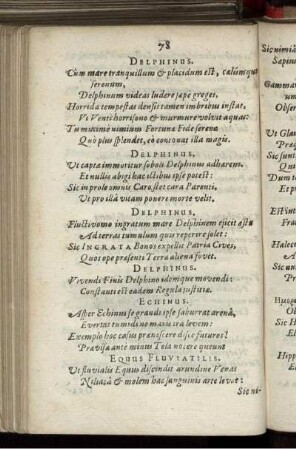 78
DELPHINUS.
Cum mare tranquillum & placidum est, cælumque
serenum,
Delphinum videas ludere sæpe greges,
Horrida tempestas densis tamen imbribus instat,
Vt Venti horrisono & murmure volvit aquas:
Tu nimium nimium Fortunæ Fide serenæ
Quò plus splendet, eò
DELPHINUS.
Vt capta immoritur soboli Delphinus adhærens,
Et nullis abigi hæc illibus ipse potest:
Sic in prolo omnis Caro, stet cara Parenti,
Vt pro illâ vitam ponere morte velit,
DELPHINUS.
Fluctivomo ingratum mare Delphinem ejicit æstu
Ad terras tumulum quis reperire solet:
Sic INGRATA Bonos expellit Patria Cives,
Quos ope præsenti Terra aliena fovet.
DELPHINUS.
Vivendi Finis Delphino idemque movendi:
Constanti est eadem Regula justitiæ.
ECHINUS.
Asper Echinus se grandi ipse saburrat arenâ,
Evertat tumidi no maris ira levem:
Exemplo hoc casus prænoscere disce futuros!
Prævisa ante minus Tela nocere queunt
EQUUS FLUVIATILIS.
Vt fluvialis Equus discindit arundine Venas
Niliacâ & molem hac sanguinis arte levat:
Sic ni-
Sic nimiâ
Sapiu
Gammar
um
Obser
Vt Glau
Præ
Sic sunt
Qu
Dum te
Et
Halec
A
Sic
D
Hipp